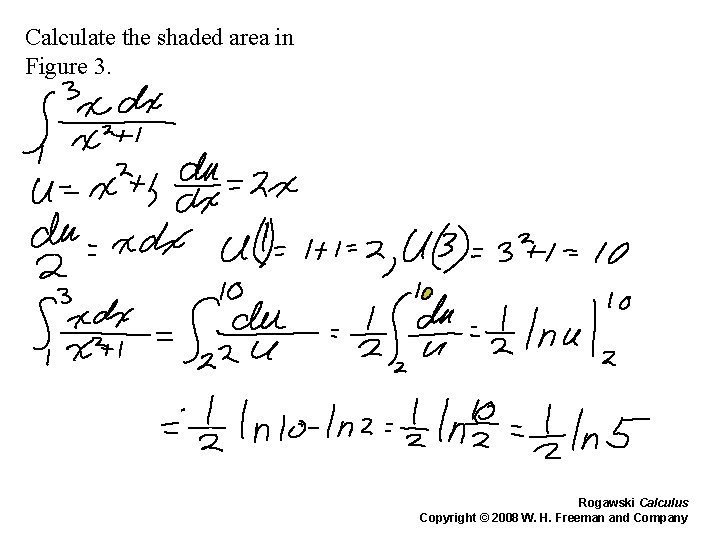 Calculate the shaded area in
Figure 3.
∫₁³ x dx / x²+1
u = x²+1, du/dx = 2x
du/2 = x dx u(1) = 1+1 = 2, u(3) = 3²+1 = 10
∫₁³ x dx / x²+1 = ∫₂¹⁰ du / 2u = 1/2 ∫₂¹⁰ du/u = 1/2 ln u |₂¹⁰
= 1/2 ln 10 - ln 2 = 1/2 ln 10/2 = 1/2 ln 5
Rogawski Calculus
Copyright © 2008 W. H. Freeman and Company